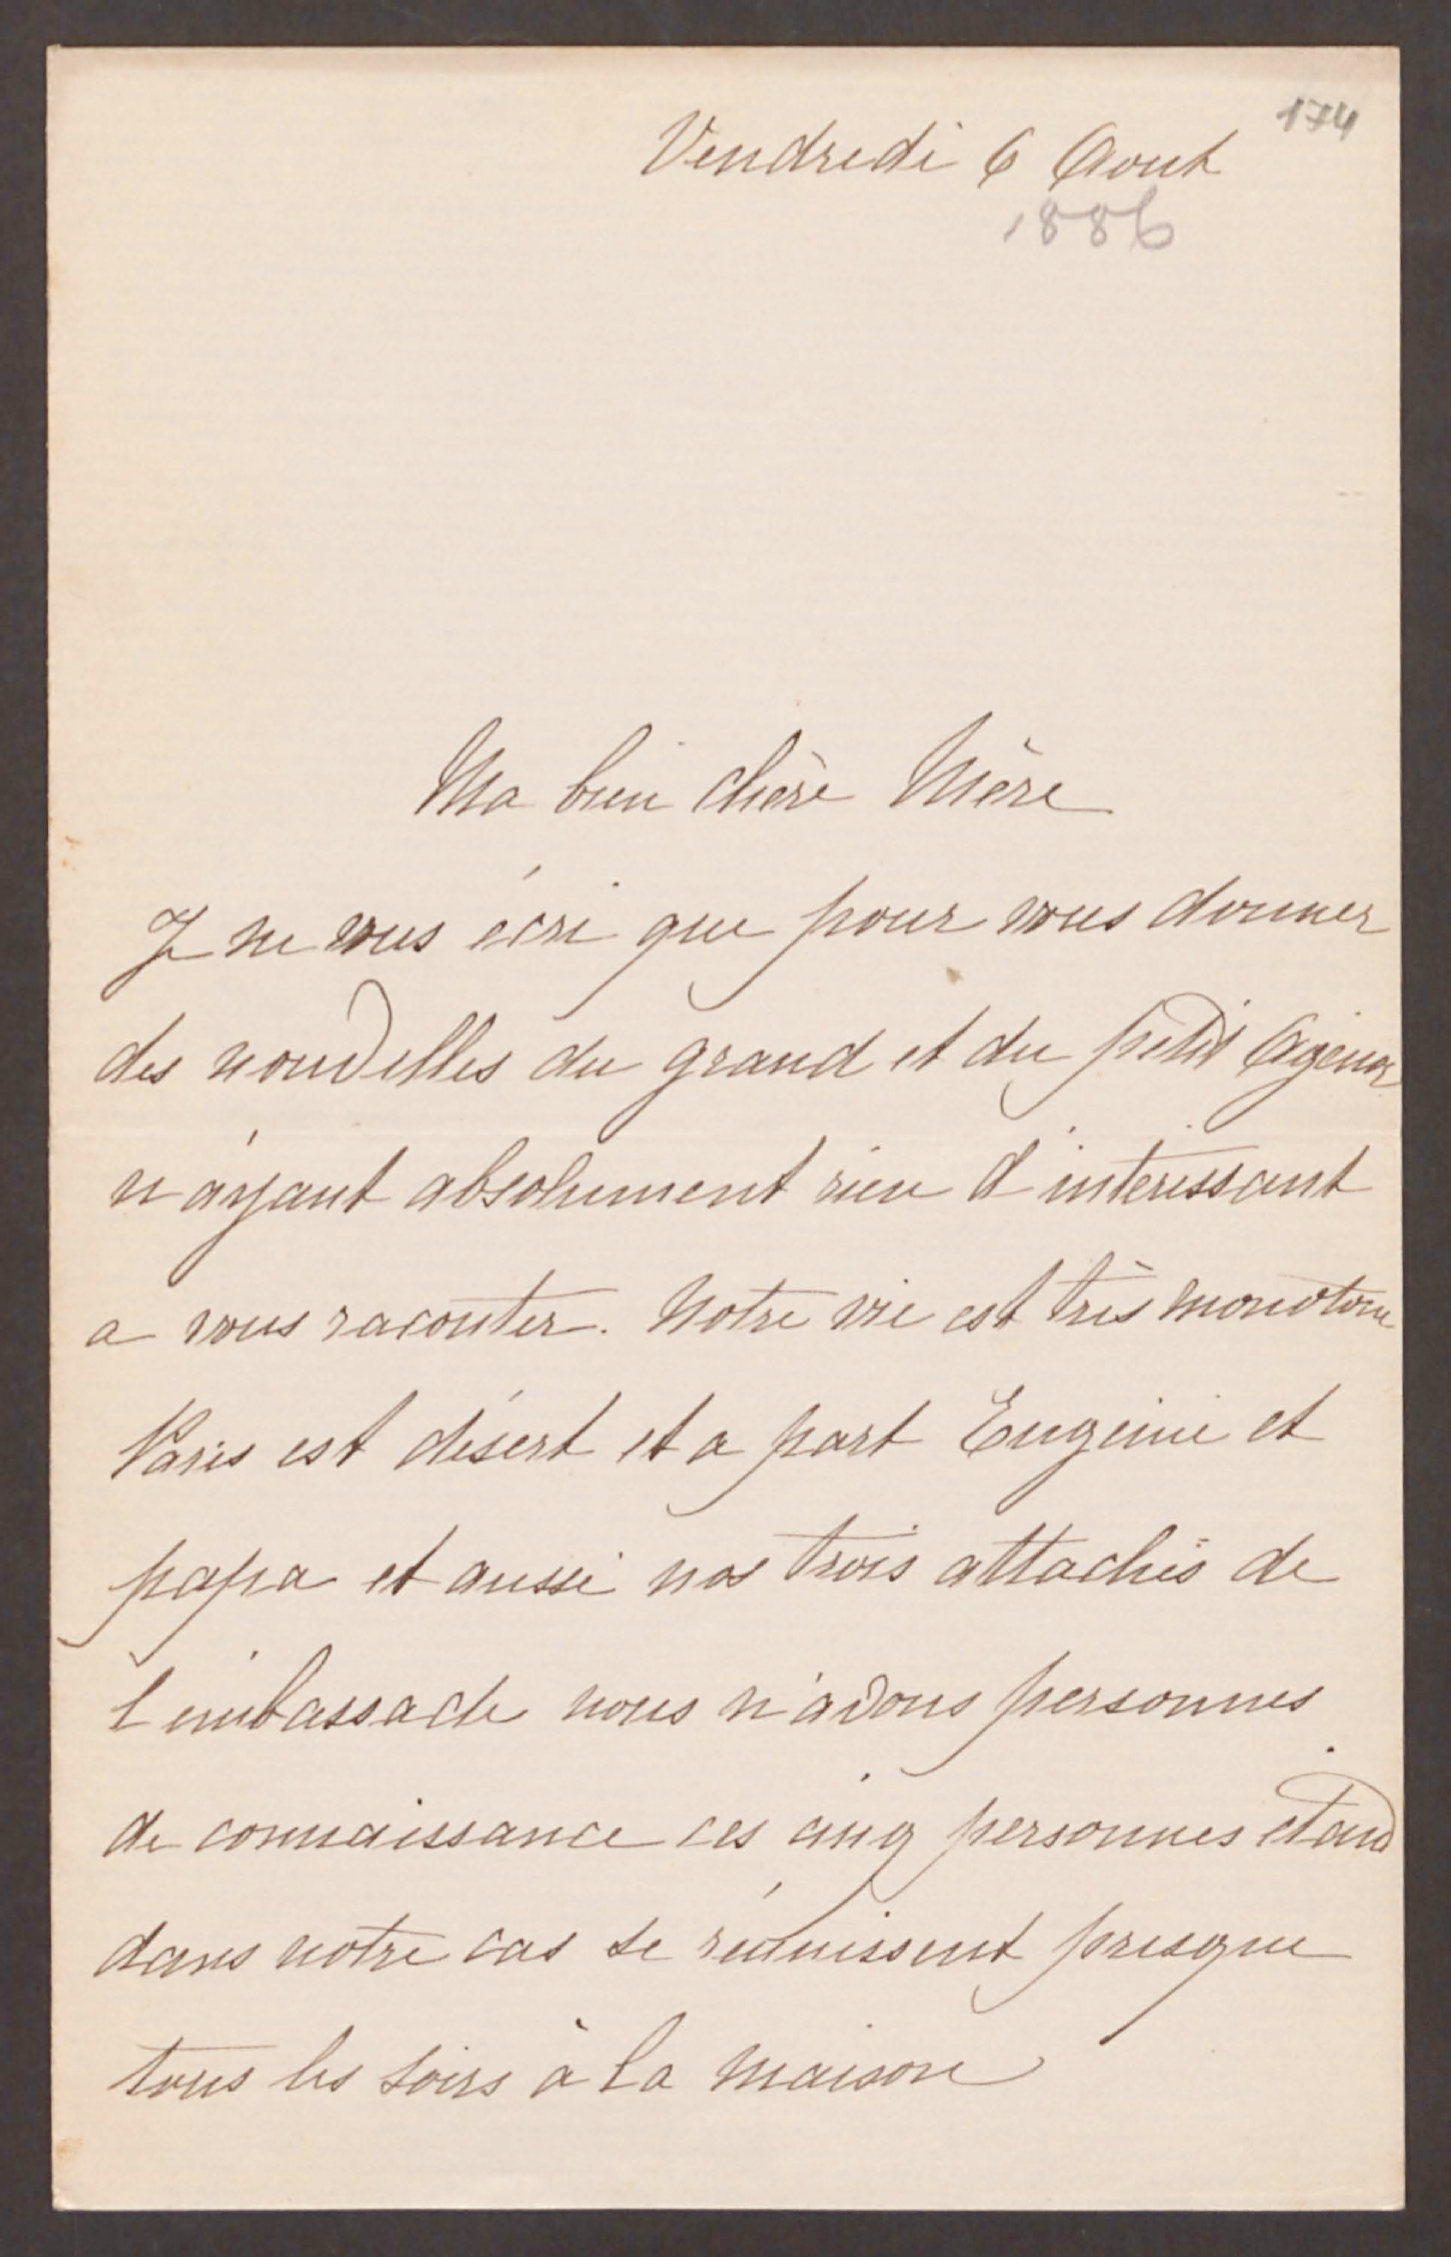 174
Vendredi 6 Aout
1886
Ma bien chère Mère
Je ne vous écri que pour vous donner
des nouvelles du grand et du petit Agénor
n'ayant absolument rien d'intéressant
a vous raconter. Notre vie est très monotone
Paris est désert et a part Eugénie et
papa et aussi nos trois attachés de
l'embassade nous n'avons personnes
de connaissance ces cinq personnes étand
dans notre cas se réunissent presque
tous les soirs à la maison